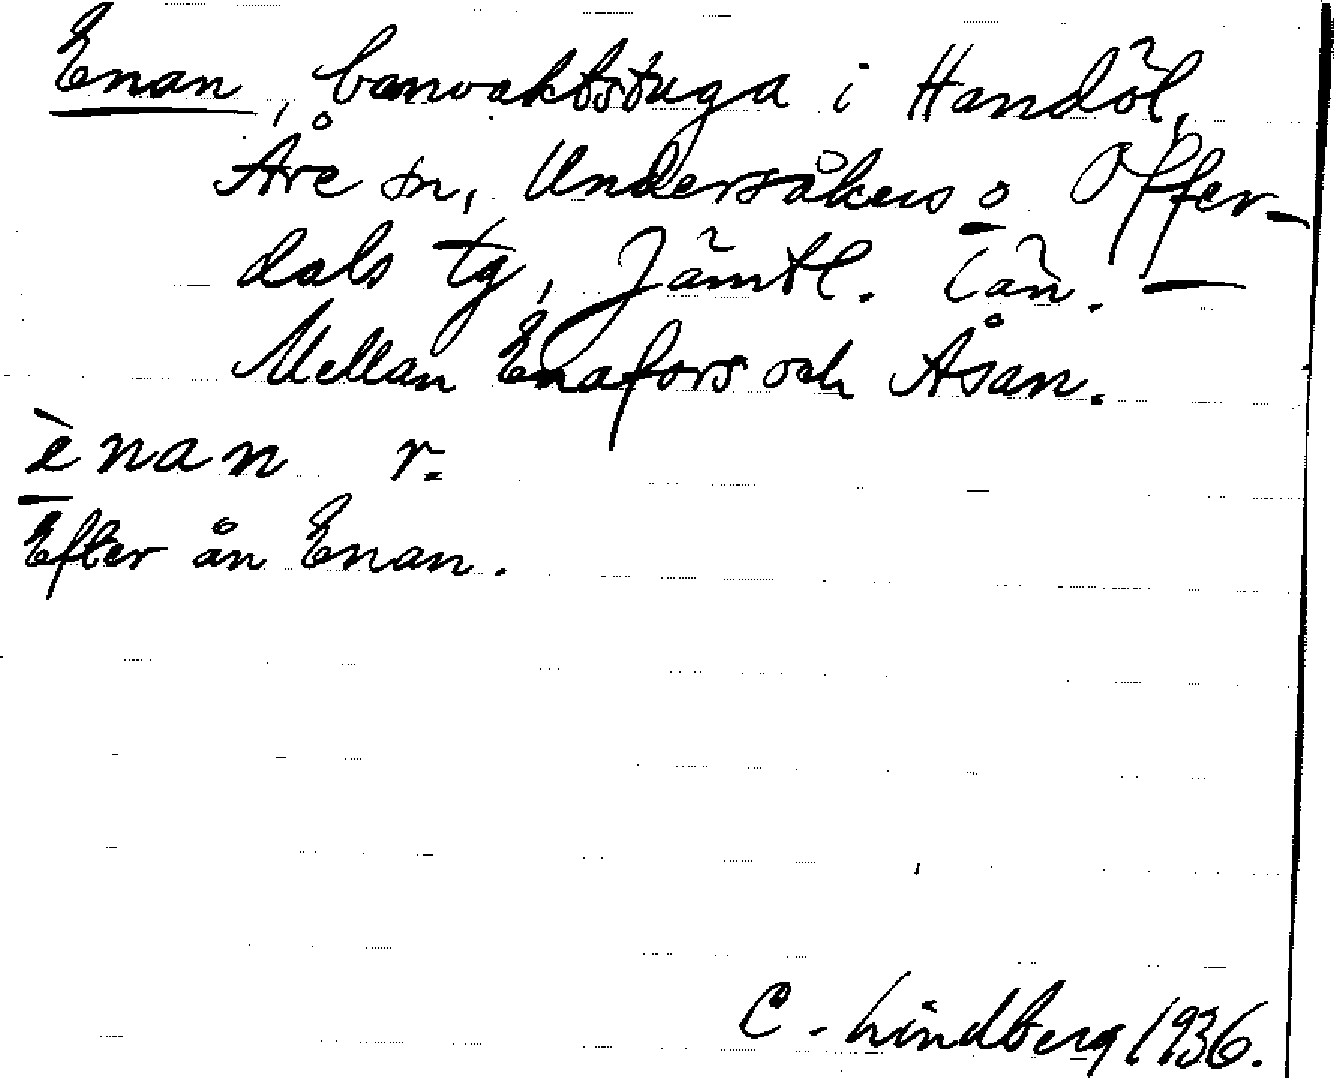 Enan, banvaktstuga i Handöl,
Åre sn, Undersåkers o Offer-
dals tg, Jämtl. län. —
Mellan Enafors och Åsan.
ènan r.
Efter ån Enan.
C. Lindberg 1936.